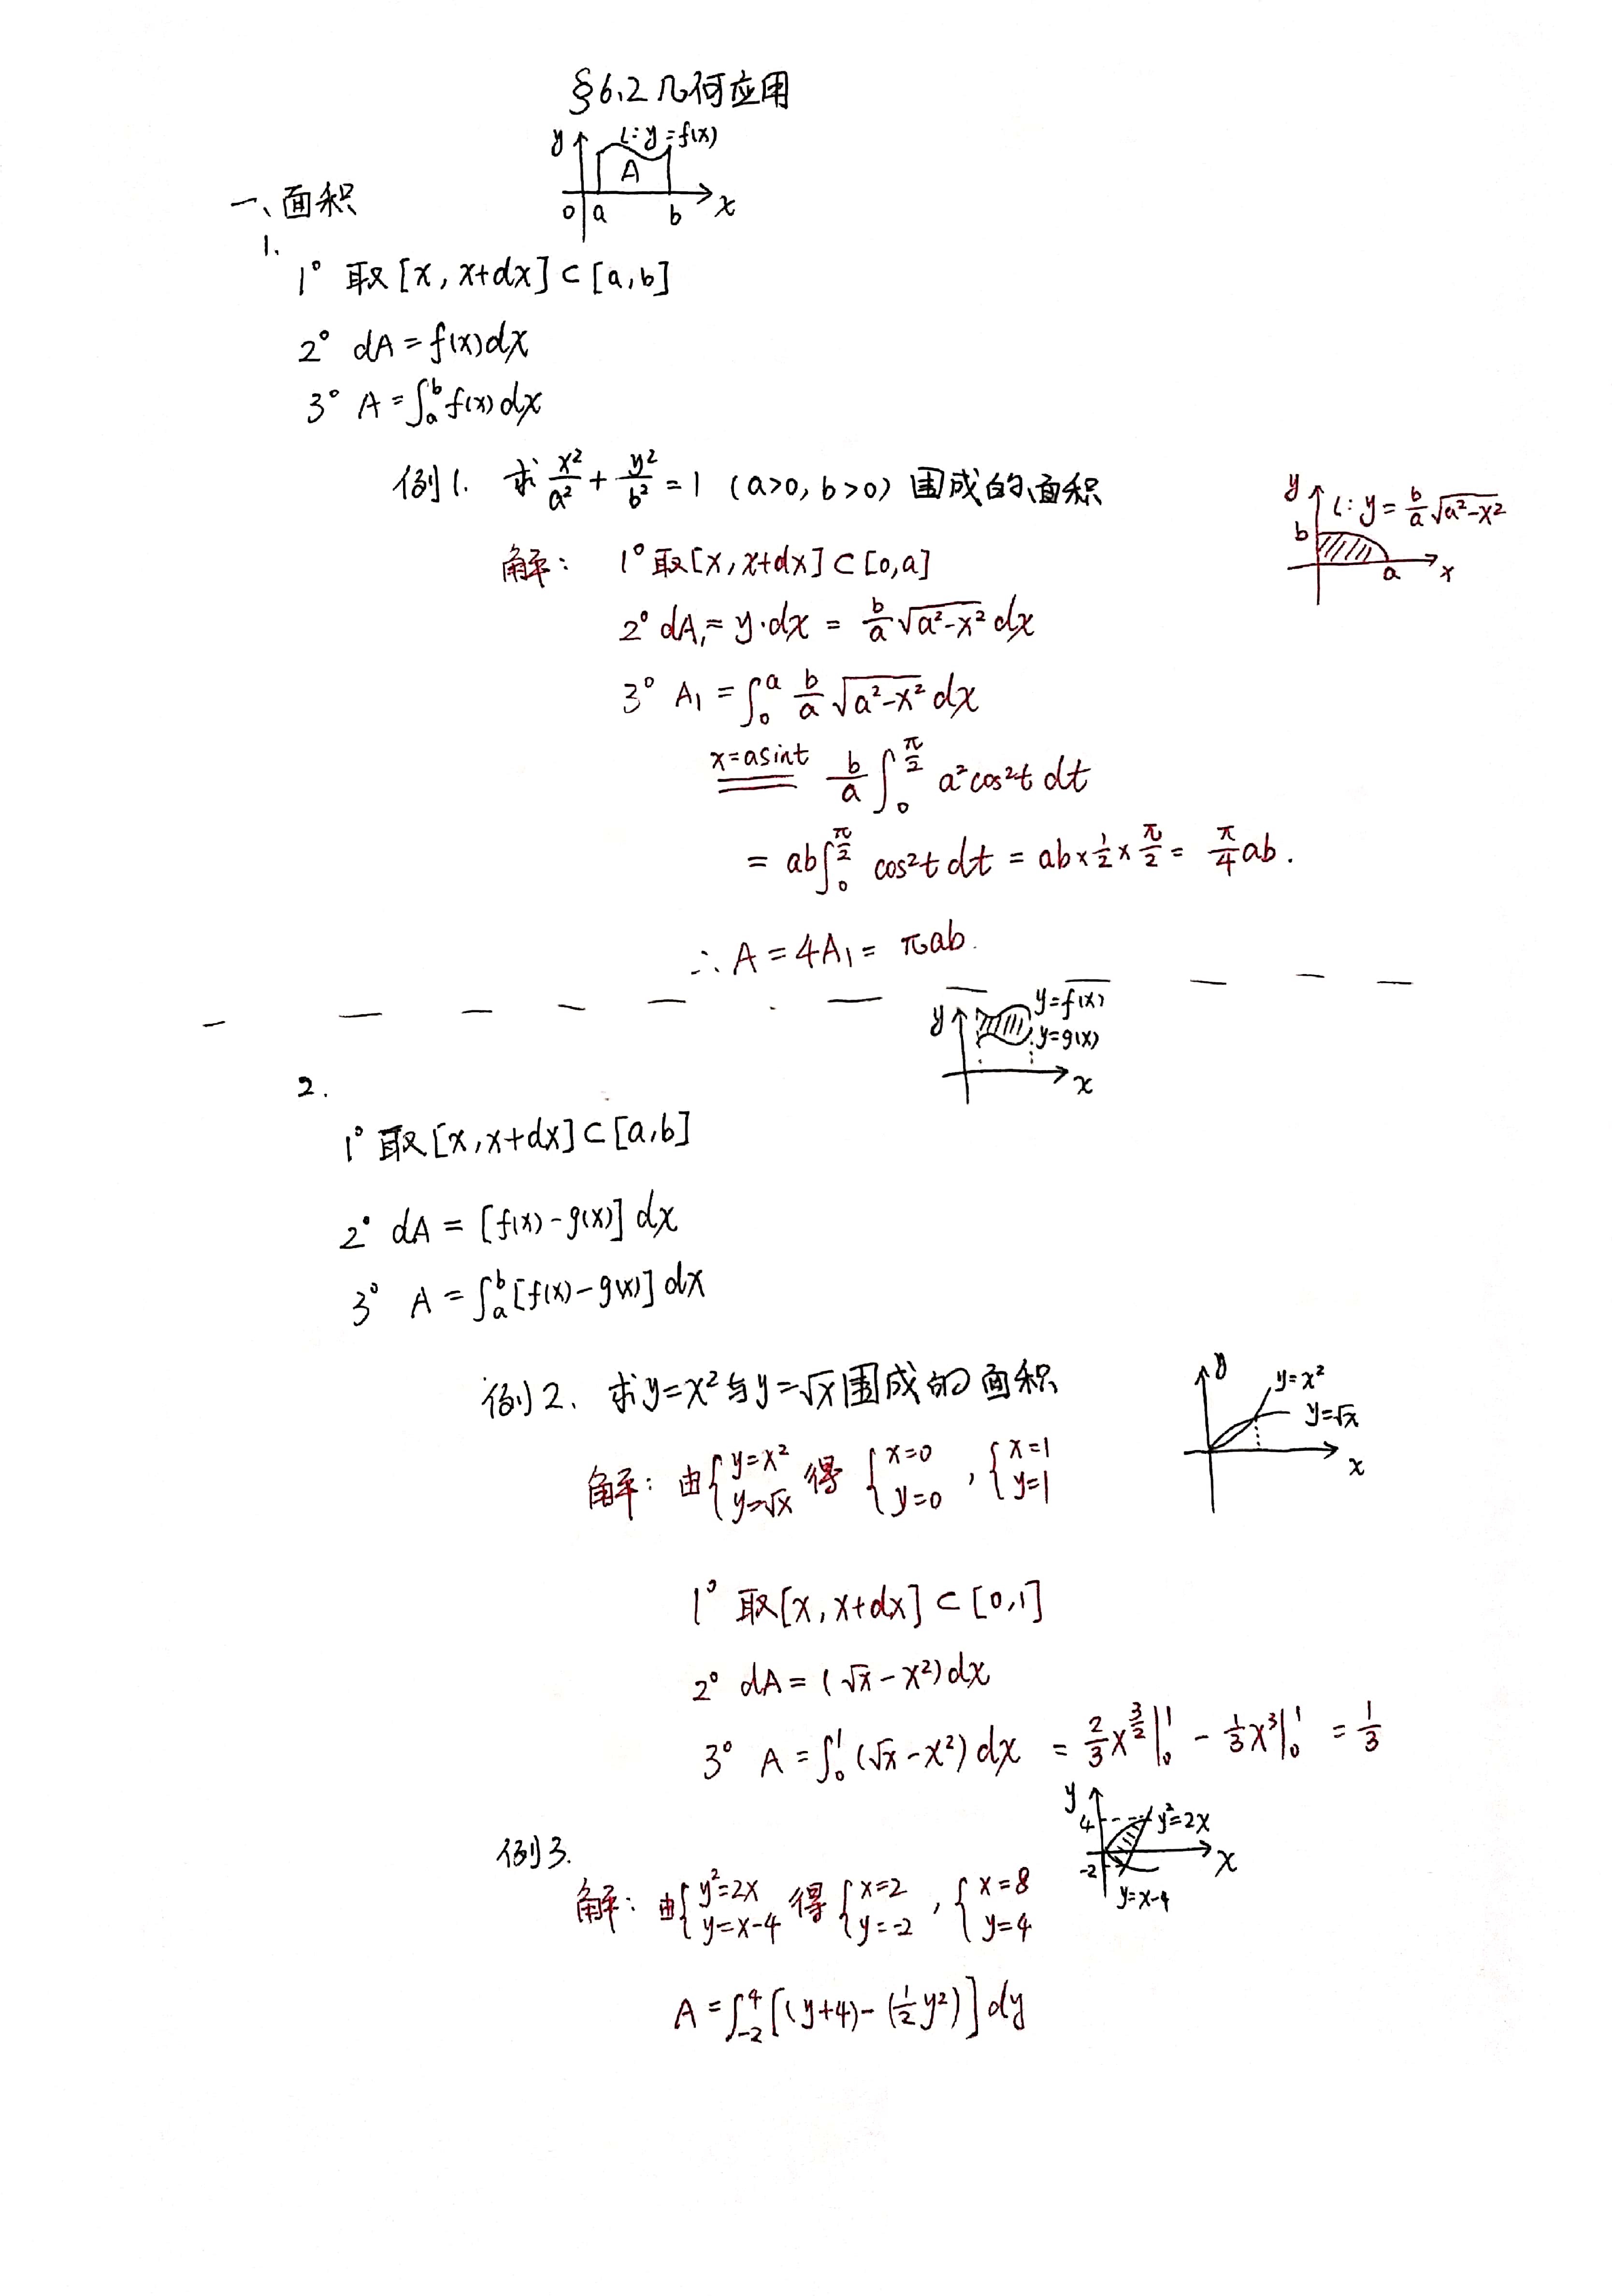 §6.2 几何应用
y L: y=f(x)
A
0 a b x
一、面积
1.
1° 取[x, x+dx]⊂[a,b]
2° dA=f(x)dx
3° A=∫_a^b f(x)dx
例1. 求 x²/a² + y²/b² = 1 (a>0, b>0) 围成的面积
y L: y = b/a √(a²-x²)
b
a x
解: 1° 取[x, x+dx]⊂[0,a]
2° dA₁= y·dx = b/a √(a²-x²) dx
3° A₁ = ∫_0^a b/a √(a²-x²) dx
x=asint b/a ∫_0^{π/2} a²cos²t dt
= ab∫_0^{π/2} cos²t dt = ab×1/2×π/2 = π/4 ab.
∴ A = 4A₁ = πab.
y y=f(x)
y=g(x)
x
2.
1° 取[x, x+dx]⊂[a,b]
2° dA = [f(x)-g(x)] dx
3° A = ∫_a^b [f(x)-g(x)] dx
例2. 求y=x²与y=√x围成的面积
y y=x²
y=√x
x
解: 由{y=x², y=√x 得 {x=0, y=0 , {x=1, y=1
1° 取[x, x+dx]⊂[0,1]
2° dA = (√x-x²)dx
3° A = ∫_0^1 (√x-x²) dx = 2/3 x^{3/2}|_0^1 - 1/3 x³|_0^1 = 1/3
y
4 y²=2x
-2 x
y=x-4
例3.
解: 由{y²=2x, y=x-4 得 {x=2, y=-2 , {x=8, y=4
A = ∫_{-2}^4 [(y+4)-(1/2 y²)] dy